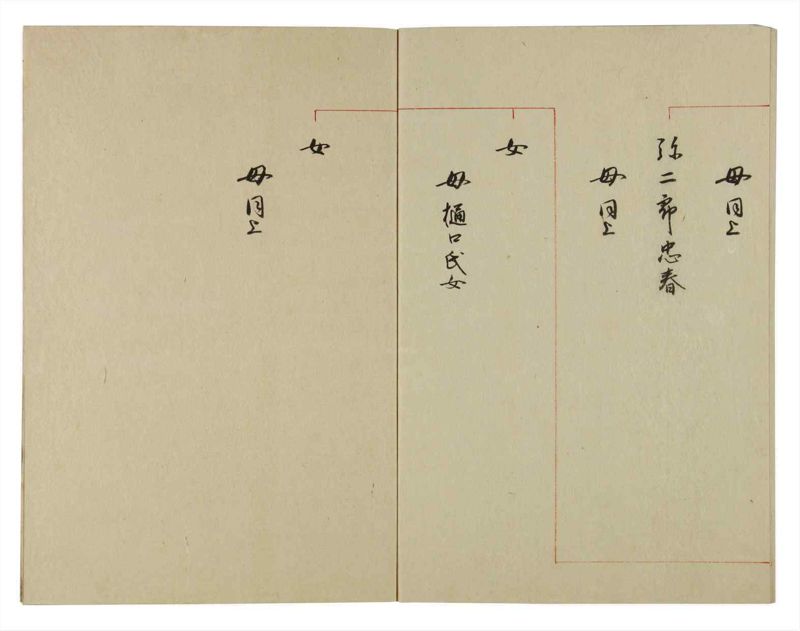 母同上
弥二郎忠春
母同上
女
母樋口氏女
女
母同上